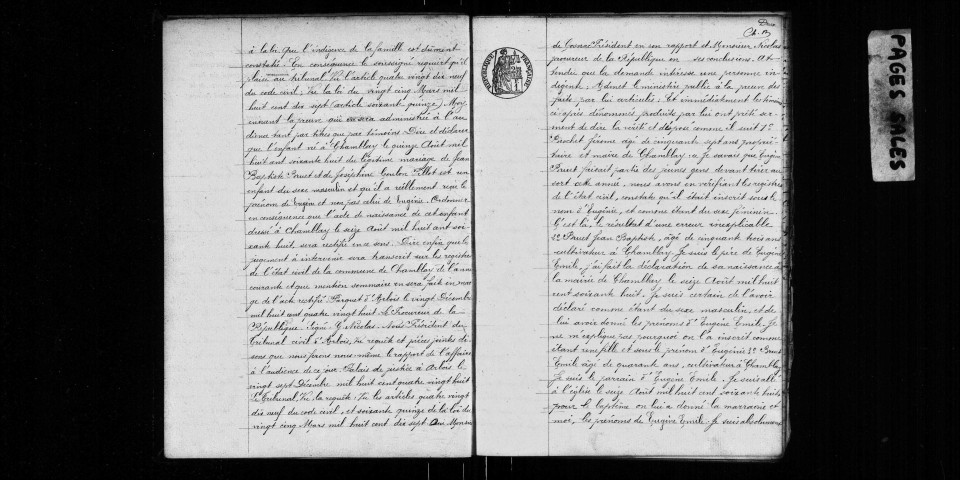 à la loi que l'indigence de la famille est dûment
constatée. En conséquence le soussigné requiert qu'il
plaise au tribunal, Vu l'article quatre vingt dix neuf
du code civil, Vu la loi du vingt cinq Mars mil
huit cent dix sept (article soixante quinze), Moy-
ennant la preuve qui en sera administrée à l'au
dience tant par titres que par témoins. Dire et déclarer
que l'enfant né à Chamblay le quinze Août mil
huit cent soixante huit du légitime mariage de Jean
Baptiste Pruet et de Joséphine Coulon Pillot est un
enfant du sexe masculin et qu'il a réellement reçu le
prénom de Eugène et non pas celui de Eugénie. Ordonner
en conséquence que l'acte de naissance de cet enfant
dressé à Chamblay le seize Août mil huit cent soi-
xante huit, sera rectifié en ce sens. Dire enfin que le
jugement à intervenir sera transcrit sur les registres
de l'état civil de la commune de Chamblay de l'année
courante et que mention sommaire en sera faite en mar
ge de l'acte rectifié. Parquet d'Arbois le vingt Décembre
mil huit cent quatre vingt huit Le Procureur de la
République signé: Nicolas. Nous Président du
Tribunal civil d'Arbois, Vu requête et pièces jointes di-
sons que nous ferons nous-même le rapport de l'affaire
à l'audience de ce jour Palais de justice à Arbois le
vingt sept Décembre mil huit cent quatre vingt huit
Le Tribunal, Vu la requête; Vu les articles quatre vingt
dix neuf du code civil, et soixante quinze de la loi du
vingt cinq Mars mil huit cent dix sept Ouï Monsieur
Deux
RÉPUBLIQUE FRANÇAISE
de Cosnac Président en son rapport et Monsieur Nicolas
procureur de la République en ses conclusions. At-
tendu que la demande intéresse une personne in-
digente; Admet le ministère public à la preuve des
faits par lui articulés; Et immédiatement les témoins
ci-après dénommés produits par lui ont prêté ser-
ment de dire la vérité et déposé comme il suit 1°.
âgé de cinquante sept ans proprié-
taire et maire de Chamblay: Je savais que Eugène
Pruet faisait partie des jeunes gens devant tirer au
sort cette année, nous avons en vérifiant les registres
de l'état civil, constaté qu'il était inscrit sous le
nom d'Eugénie, et comme étant du sexe féminin.
C'est là, le résultat d'une erreur inexplicable
2° Pruet Jean Baptiste, âgé de cinquante trois ans
cultivateur à Chamblay: Je suis le père de Eugène
Emile, j'ai fait la déclaration de sa naissance à
la mairie de Chamblay le seize Août mil huit
cent soixante huit. Je suis certain de l'avoir
déclaré comme étant du sexe masculin, et de
lui avoir donné les prénoms d'Eugène Emile. Je
ne m'explique pas pourquoi on l'a inscrit comme
étant une fille et sous le prénom d'Eugénie 3°. Pruet
Emile âgé de quarante ans, cultivateur à Chamblay
Je suis le parrain d'Eugène Emile. Je suis allé
à l'église le seize Août mil huit cent soixante huit
pour le baptême on lui a donné la marraine et
moi, les prénoms de Eugène Emile. Je suis absolument
PAGES SALES